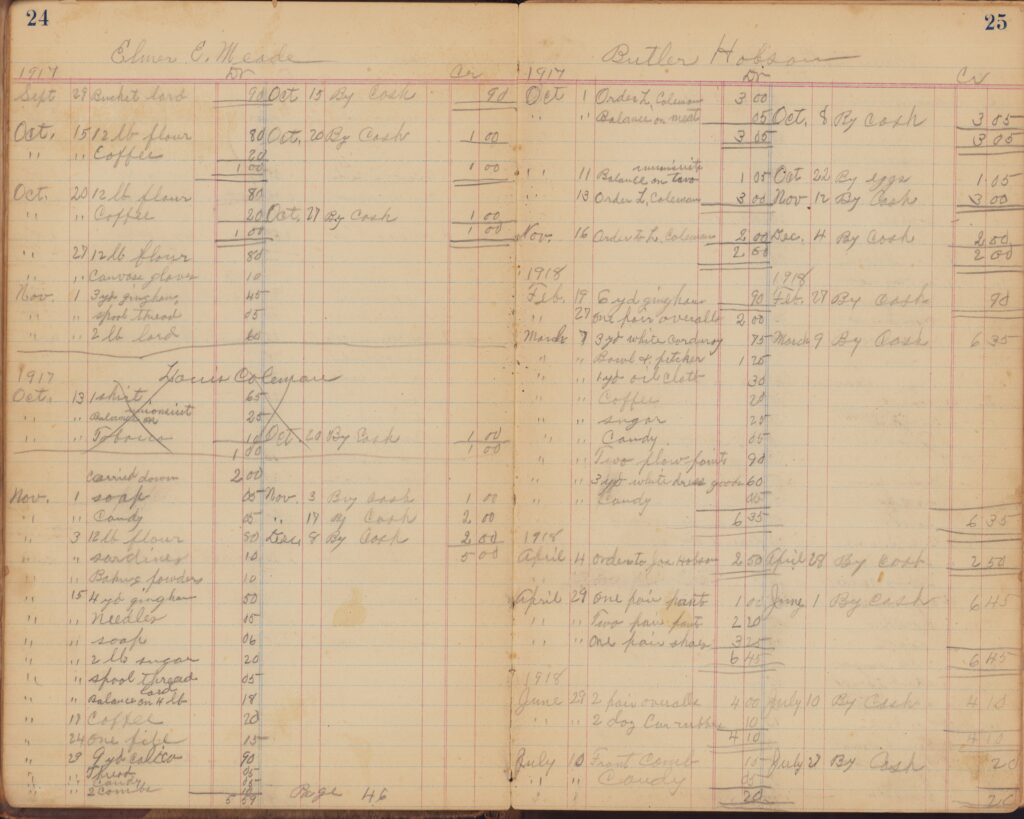 24
Elmer E. Meade
1917 Dr Cr
Sept 29 Bucket lard 90 Oct 15 By Cash 90
Oct. 15 12 lb flour 80 Oct. 20 By Cash 1 00
" " Coffee 20
1 00 1 00
Oct. 20 12 lb flour 80
" " Coffee 20 Oct. 27 By Cash 1 00
1 00 1 00
" 27 12 lb flour 80
" " Canvase gloves 10
Nov. 1 3 yd gingham 45
" " spool thread 05
" " 2 lb lard 60
1917 Louis Coleman
Oct. 13 1 shirt 65
" " Balance on 25
" " Tobacco 10 Oct 20 By Cash 1 00
1 00 1 00
Carried down 2 00
Nov. 1 soap 05 Nov. 3 By Cash 1 00
" " Candy 05 " 17 By Cash 2 00
" 3 12 lb flour 80 Dec. 8 By Cash 2 00
" " sardines 10 5 00
" " Baking powders 10
" 15 4 yd gingham 50
" " Needles 05
" " soap 06
" " 2 lb sugar 20
" " spool thread 05
" " Balance on 4 lb lard 18
" 17 Coffee 20
" 24 one file 15
" 29 9 yd calico 90
" " Thread 05
" " Candy 05
" " 2 Combs 10
5 59 Page 46
25
Butler Hobson
1917 Dr Cr
Oct 1 Order L. Coleman 3 00
" " Balance on meat 05 Oct. 8 By Cash 3 05
3 05 3 05
" 11 Balance on 1 05 Oct 22 By eggs 1 05
" 13 Order L. Coleman 3 00 Nov 12 By Cash 3 00
Nov. 16 Order to L. Coleman 2 00 Dec. 4 By Cash 2 00
2 00 2 00
1918 1918
Feb. 19 6 yd gingham 90 Feb. 27 By Cash 90
" 27 one pair overalls 2 00
March 7 3 yd white corduroy 75 March 9 By Cash 6 35
" " Bowl & pitcher 1 25
" " 1 yd oil cloth 30
" " Coffee 20
" " sugar 25
" " Candy 05
" " Two plow points 90
" " 3 yd white dress goods 60
" " Candy 05
6 35 6 35
1918
April 4 order to Jas Hobson 2 50 April 28 By Cash 2 50
April 29 one pair pants 1 00 June 1 By Cash 6 45
" " Two pair pants 2 20
" " One pair shoes 3 25
6 45 6 45
1918
June 29 2 pair overalls 4 00 July 10 By Cash 4 10
" " 2 doz Can rubbers 10
4 10 4 10
July 10 Front Comb 15 July 27 By Cash 20
" " Candy 05
20 20